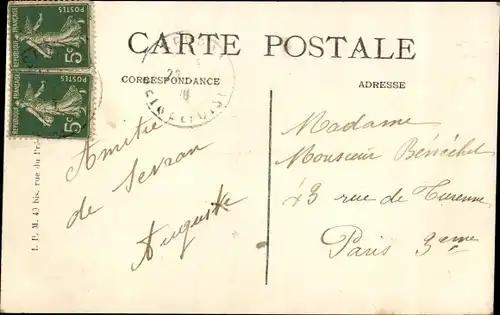 CARTE POSTALE
CORRESPONDANCE
ADRESSE
REPUBLIQUE FRANÇAISE
POSTES
5c
REPUBLIQUE FRANÇAISE
POSTES
5c
I. P. M. 49 bis, rue du
Amitié
de Sevran
Auguste
Madame
Monsieur Bénéchet
43 rue de Turenne
Paris 3eme